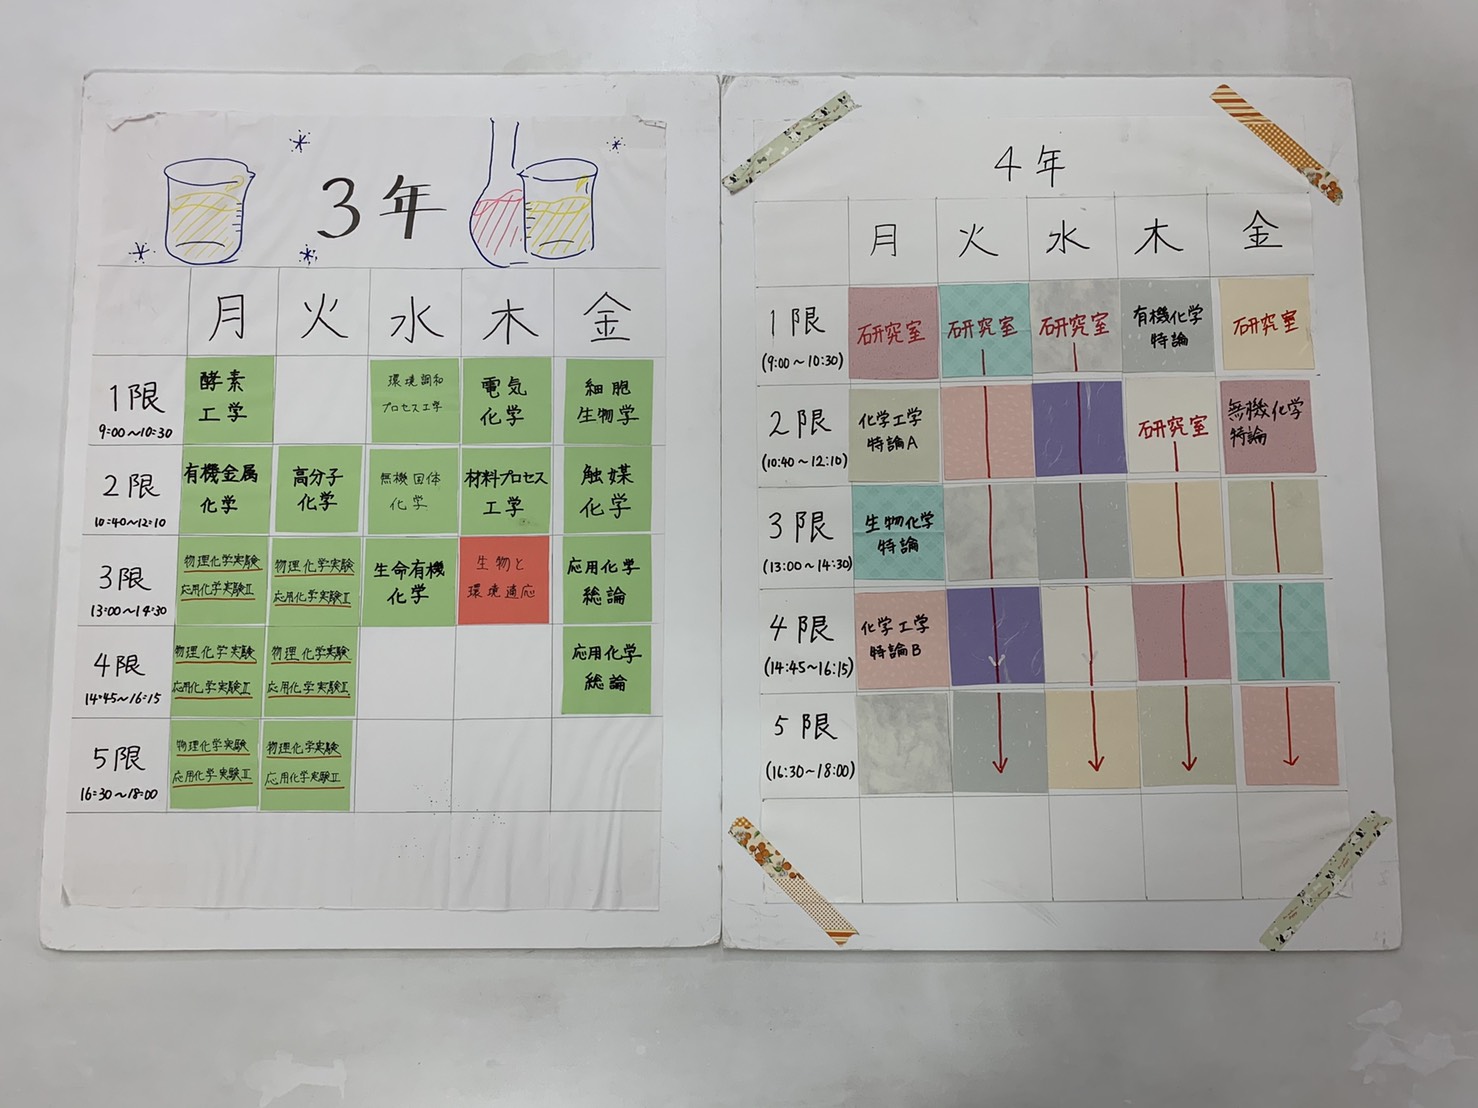 3年
月 火 水 木 金
1限
9:00~10:30
酵素
工学
環境調和
プロセス工学
電気
化学
細胞
生物学
2限
10:40~12:10
有機金属
化学
高分子
化学
無機固体
化学
材料プロセス
工学
触媒
化学
3限
13:00~14:30
物理化学実験
応用化学実験Ⅱ
物理化学実験
応用化学実験Ⅱ
生命有機
化学
生物と
環境適応
応用化学
総論
4限
14:45~16:15
物理化学実験
応用化学実験Ⅱ
物理化学実験
応用化学実験Ⅱ
応用化学
総論
5限
16:30~18:00
物理化学実験
応用化学実験Ⅱ
物理化学実験
応用化学実験Ⅱ
4年
月 火 水 木 金
1限
(9:00~10:30)
研究室
研究室
研究室
有機化学
特論
研究室
2限
(10:40~12:10)
化学工学
特論A
研究室
無機化学
特論
3限
(13:00~14:30)
生物化学
特論
4限
(14:45~16:15)
化学工学
特論B
5限
(16:30~18:00)